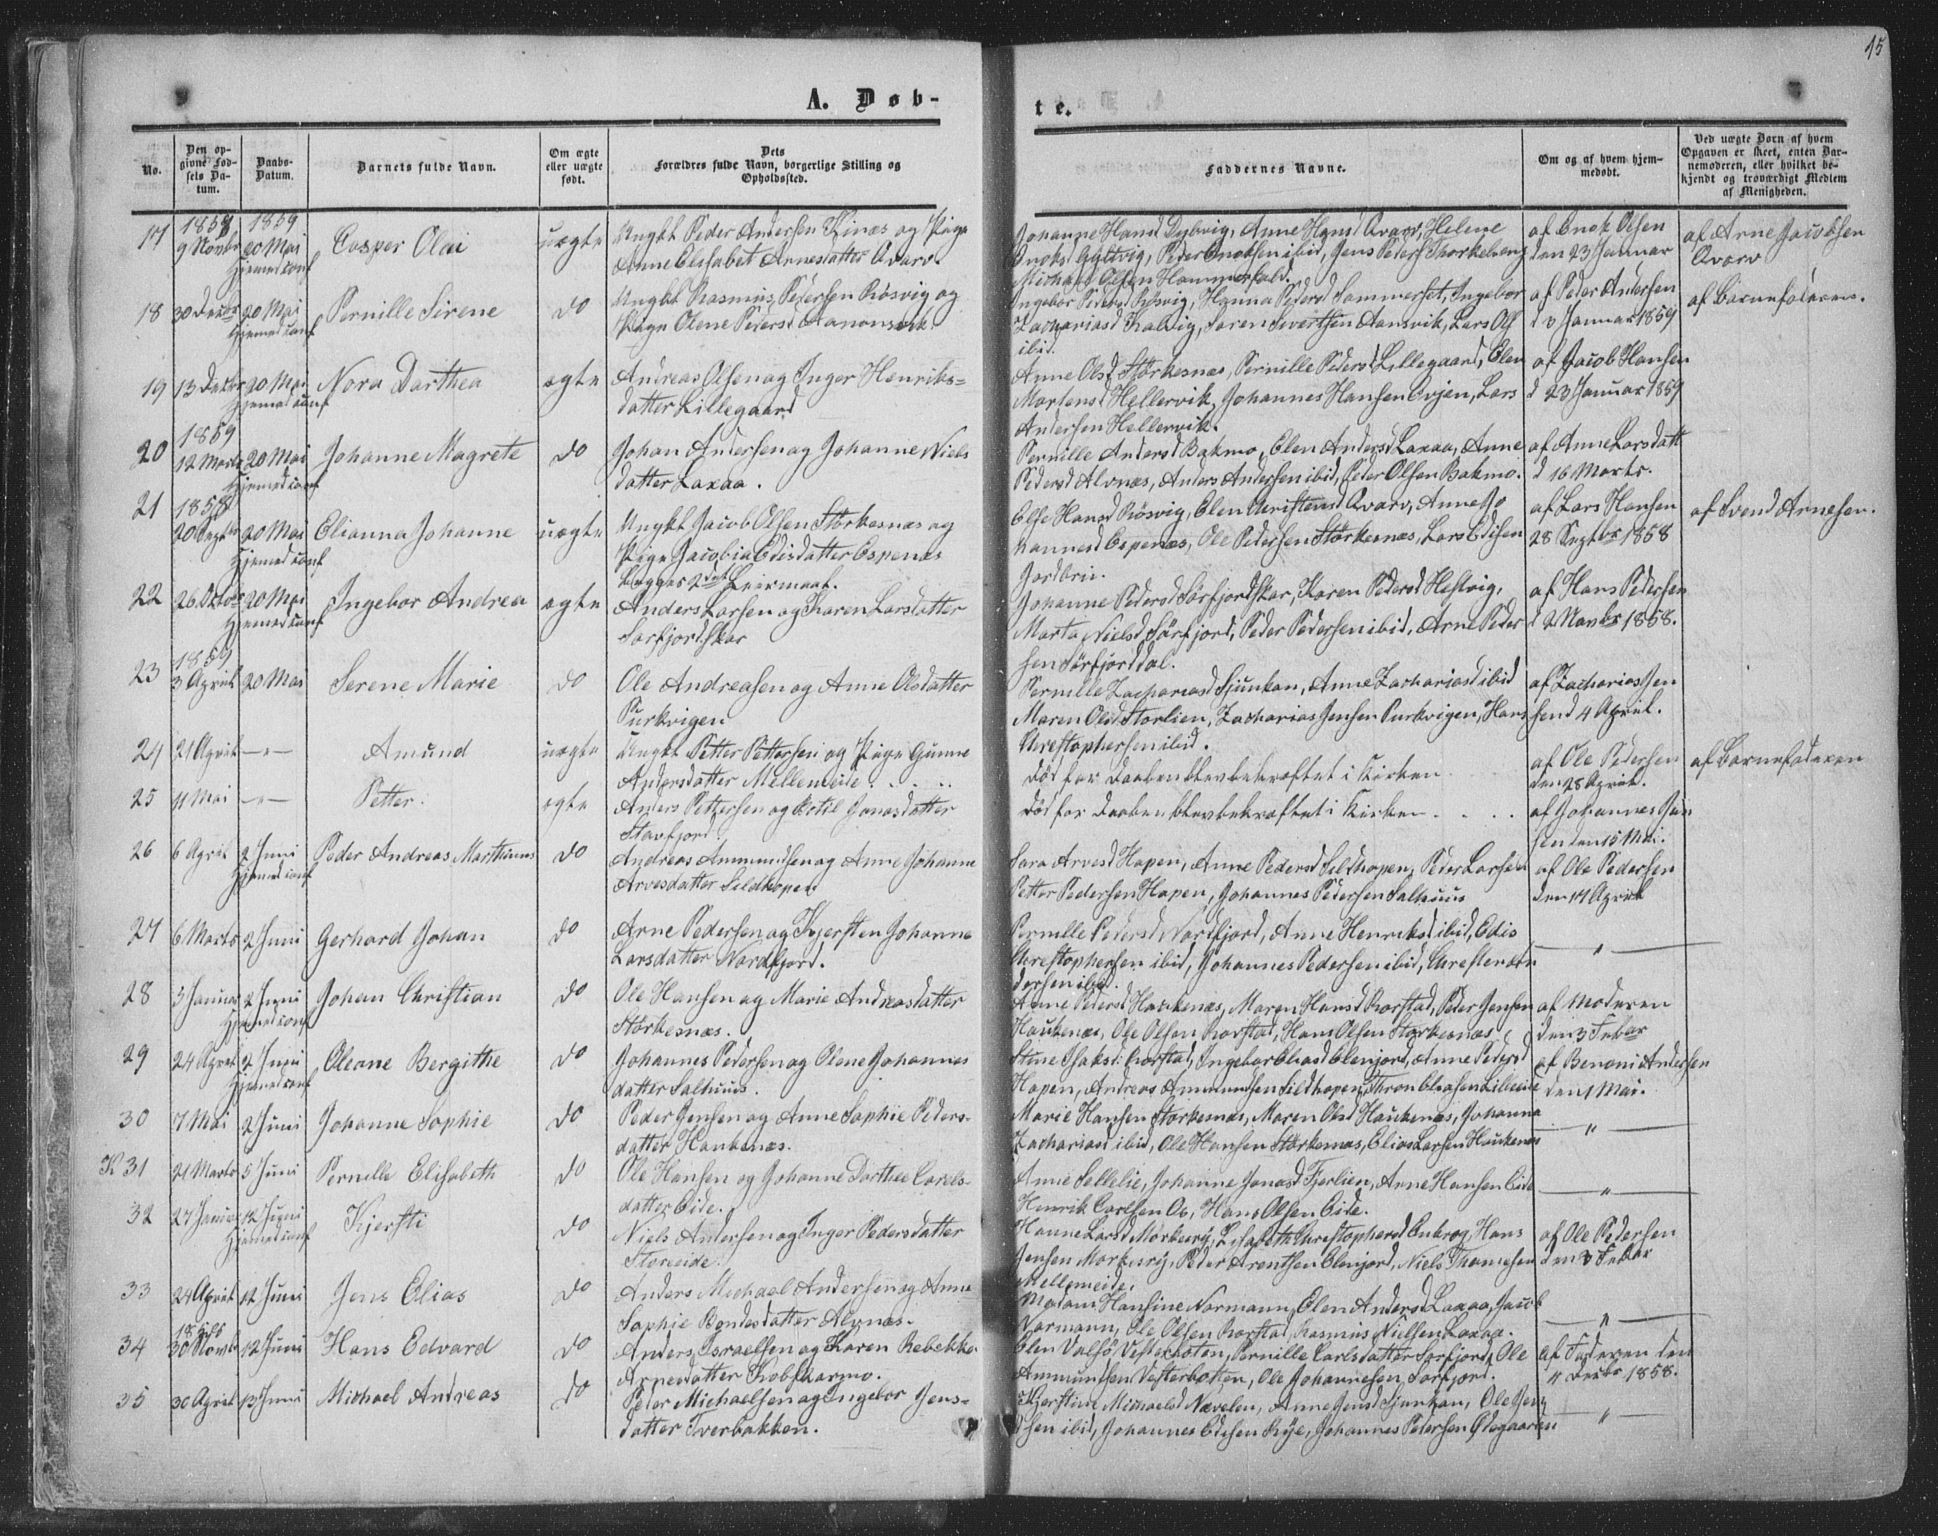 15
A. Døb-
te.
No.
Den op-
givne Fød-
sels Da-
tum.
Daabs-
Datum.
Barnets fulde Navn.
Om ægte
eller uægte
født.
Dets
Forældres fulde Navn, borgerlige Stilling og
Opholdssted.
Faddernes Navne.
Om og af hvem hjem-
medøbt.
Ved uægte Børn af hvem
Opgaven er skeet, enten Bar-
nemoderen, eller hvilket be-
kjendt og troværdigt Medlem
af Menigheden.
17 1858 9 Novbr 1859 20 Mai Hjemed conf Casper Olai uægte Ungkt Peder Andersen Kinæs og Pige
Anne Elisabet Arnesdatter Qvarv.
Johanne Hansd Dybvig, Anne Hansd Qvarv, Helene
Enoksd Gyltvig, Peder Enoksen ibid, Jens Peders Thorkelseng
Michael Olsen Hammerfald.
af Enok Olsen
den 23 Januar
af Arne Jacobsen
Qvarv
18 30 Decbr 20 Mai Hjemed conf Pernille Sirene do Ungkt Rasmus Pedersen Røsvig og
Pige Olene Pedersd Aanonsvik.
Ingebor Pedersd Røsvig, Hanna Pedersd Sommerset, Ingebor
Zachariasd Kalvig, Søren Sivertsen Aansvik, Lars Ols
ibid.
af Peder Andersen
d 3 Januar 1859
af Barnefaderen.
19 13 Decbr 20 Mai Hjemed conf Nora Darthea ægte Andreas Olsen og Inger Henriks-
datter Lillegaard
Anne Olsd Størkesnæs, Pernille Pedersd Lillegaard, Elen
Martensd Hellervik, Johannes Hansen Evjen, Lars
Andersen Hellervik.
af Jacob Hansen
d 23 Januar 1859
20 1859 12 Marts 20 Mai Hjemed conf Johanne Magrete do Johan Andersen og Johanne Niels
datter Laxaa.
Pernille Andersd Bakmo, Elen Andersd Laxaa, Anne
Pedersd Alvnæs, Anders Andersen ibid, Peder Olsen Bakmo.
af Anne Larsdatt
d 16 Marts.
21 1858 20 Septbr 20 Mai Hjemed conf Elianna Johanne uægte Ungkt Jacob Olsen Størkesnæs og
Pige Jacobia Edisdatter Espenæs
begges 2det Leiermaal.
Else Hansd Røsvig, Elen Christensd Qvarv, Anne Jo
hannesd Espenæs, Ole Pedersen Størkesnæs, Lars Edisen
Jordbru.
af Lars Hansen
28 Septbr 1858
af Svend Arnesen.
22 26 Octbr 20 Mai Hjemed conf Ingebor Andrea ægte Anders Larsen og Karen Larsdatter
Sørfjordskar
Johanne Pedersd Sørfjordskar, Karen Pedersd Hestvig,
Marta Nielsd Sørfjord, Peder Pedersen ibid, Arne Peder
sen Sørfjorddal.
af Hans Pedersen
d 2 Novbr 1858.
23 1859 3 April 20 Mai Serene Marie do Ole Andreasen og Anne Olsdatter
Purkvigen
Pernille Zachariasd Sjunkan, Anne Zachariasd ibid
Maren Olsd Storlien, Zacharias Jensen Purkvigen, Hans
Christophersen ibid.
af Zacharias Jen
sen d 4 April.
24 21 April —"— Amund uægte Ungkt Petter Pettersen og Pige Gunne
Andersdatter Mellemeide.
Død før Daaben blev bekræftet i Kirken
af Ole Pedersen
den 28 April.
af Barnefaderen
25 11 Mai —"— Petter. ægte Anders Pettersen og Botil Jonasdatter
Storfjord.
død før Daaben blev bekræftet i Kirken . . .
af Johannes Jen
sen den 15 Mai.
26 6 April 2 Juni Hjemed conf Peder Andreas Marthinus do Andreas Ammundsen og Anne Johanne
Arvesdatter Sildhopen
Sara Arvesd Hopen, Anne Pedersd Sildhopen, Peder Larsen
Petter Pedersen Hopen, Johannes Pedersen Salhuus
af Ole Pedersen
den 17 April
27 6 Marts 2 Juni Gerhard Johan do Arne Pedersen og Kjersten Johanne
Larsdatter Nordfjord.
Pernille Pedersd Nordfjord, Anne Henriksd ibid, Edis
Christophersen ibid, Johannes Pedersen ibid, Christen An
dersen ibid.
—"—
28 3 Januar 2 Juni Hjemed conf Johan Christian do Ole Hansen og Marie Andreasdatter
Størkesnæs.
Anne Pedersd Haukenæs, Maren Hansd Rorstad, Peder Jensen
Haukenæs, Ole Olsen Rorstad, Hans Olsen Størkesnæs
af Moderen
den 3 Febar
29 24 April 2 Juni Hjemed conf Oleane Bergithe do Johannes Pedersen og Olene Johannes
datter Salhuus.
Stine Isaksd Rorstad, Ingebor Eliasd Elenjord, Anne Pedersd
Hopen, Andreas Ammundsen Sildhopen, Thron Eliasen Lileeide
af Benoni Andersen
den 1 Mai.
30 7 Mai 2 Juni Johanne Sophie do Peder Jensen og Anne Sophie Peders-
datter Haukenæs.
Marie Hansen Størkesnæs, Maren Olsd Haukenæs, Johanna
Zachariasd ibid, Ole Hansen Størkesnæs, Elias Larsen Haukenæs
—"—
K 31 21 Marts 5 Juni Pernille Elisabeth do Ole Hansen og Johanne Dorthea Carels-
datter Eide.
Anne Lellelie, Johanne Jonasd Fjerlien, Arne Hansen Eide
Henrik Carlsen Os, Hans Olsen Eide.
—"—
32 27 Januar 12 Juni Hjemed conf Kjersti do Niels Andersen og Inger Pedersdatter
Storeide.
Hanne Larsd Mørkesrij, Elisabeth Christophersd Enkrog, Hans
Jensen Mørkesrij, Peder Arentsen Elenjord, Niels Thomesen
Mellemeide.
af Ole Pedersen
den 3 Febar
33 24 April 12 Juni Jens Elias do Anders Michael Andersen og Anne
Sophie Bendesdatter Alvnæs.
Madam Hansine Normann, Elen Andersd Laxaa, Jacob
Normann, Ole Olsen Rorstad, Rasmus Nielsen Laxaa.
—"—
34 1858 30 Novbr 12 Juni Hans Edvard do Anders Israelsen og Karen Rebekka
Arnesdatter Kobskarmo.
Elen Olsd Vesterbotten, Pernille Carlsdatter Sørfjord, Ole
Ammundsen Vesterbotten, Ole Johannesen Sørfjord.
af Faderen den
11 Decbr 1858.
35 30 April 13 Juni Michael Andreas do Peter Michaelsen og Ingebor Jens-
datter Tverbakken.
Kjerstine Michaelsd Nævelen, Anne Jensd Sjunkan, Ole Jen
sen ibid, Johannes Edisen Rye, Johannes Pedersen Ødegaarden
—"—